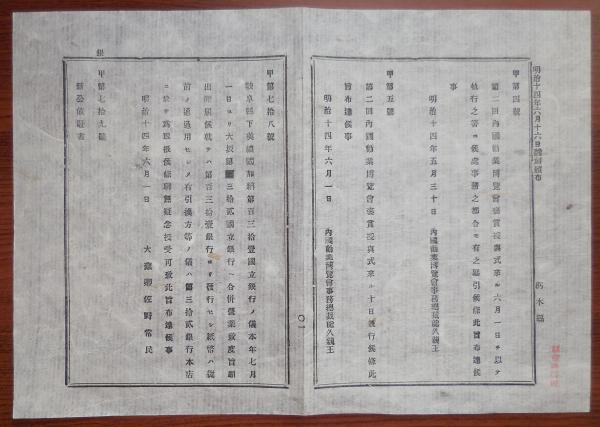 明治十四年六月十六日
栃木縣
甲第四號
第二回內國勸業博覽會褒賞授與式來ル六月一日ヲ以テ
執行之筈ニ候處事務之都合モ有之延引候條此旨布達候
事
明治十四年五月三十日 內國勸業博覽會事務總裁能久親王
甲第五號
第二回內國勸業博覽會褒賞授與式來ル十日執行候條此
旨布達候事
明治十四年六月一日 內國勸業博覽會事務總裁能久親王
〇一
甲第七拾八號
岐阜縣下美濃國 第百三拾壹國立銀行ノ儀本年七月
一日ヨリ大坂第三拾貳國立銀行ヘ合併營業致度旨願
出聞屆候就テハ第百三拾壹銀行ヨリ發行セシ紙幣ハ從
前ノ通通用セシメ右引換方等ノ儀ハ第三拾貳銀行本店
ニ於テ爲取扱候條聊無疑念授受可致此旨布達候事
明治十四年六月一日 大藏卿佐野常民
甲第七拾九號
舊公債證書
銀